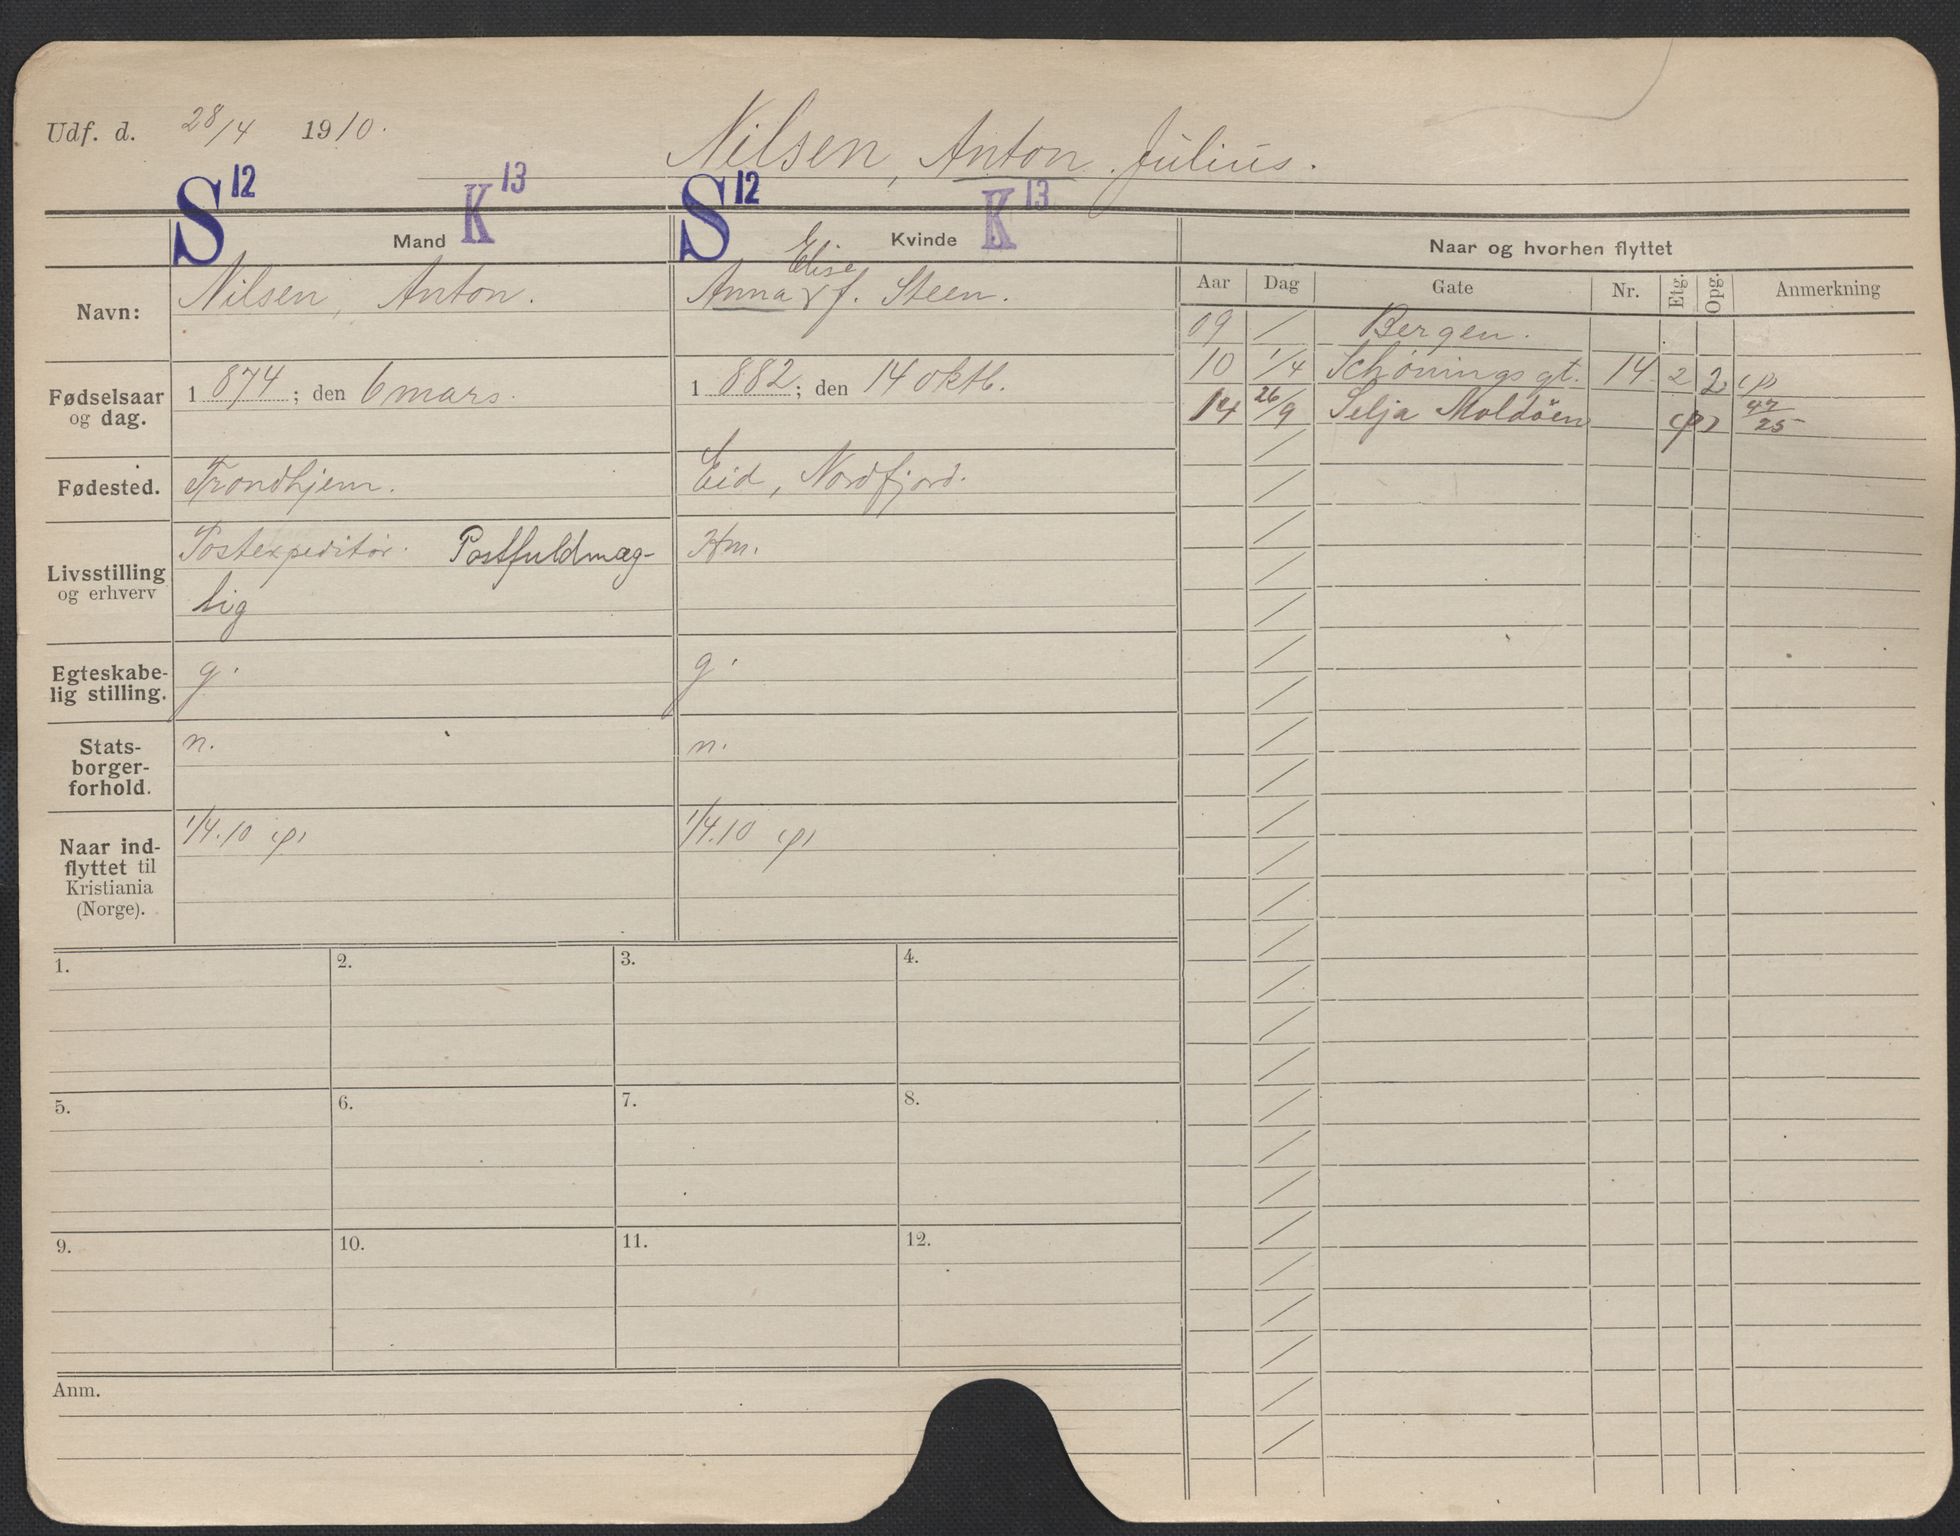 Udf. d. 28/4 1910. Nilsen, Anton Julius.
S 12 K 13 S 12 K 13
Mand Kvinde Naar og hvorhen flyttet
Navn: Nilsen, Anton. Anna Elise f. Steen.
Fødselsaar og dag. 1 874; den 6 mars. 1 882; den 14 oktb.
Fødested. Trondhjem. Eid, Nordfjord.
Livsstilling og erhverv Postexpeditør. Postfuldmæg- Hm.
tig
Egteskabe-
lig stilling. g. g.
Stats-
borger-
forhold. n. n.
Naar ind-
flyttet til
Kristiania
(Norge). 1/4.10 (p) 1/4.10 (p)
Aar Dag Gate Nr. Etg. Opg. Anmerkning
09 / Bergen.
10 1/4 Schønings gt. 14 2 2 (p)
14 26/9 Selja Moldöen (p) 47/25
1. 2. 3. 4.
5. 6. 7. 8.
9. 10. 11. 12.
Anm.